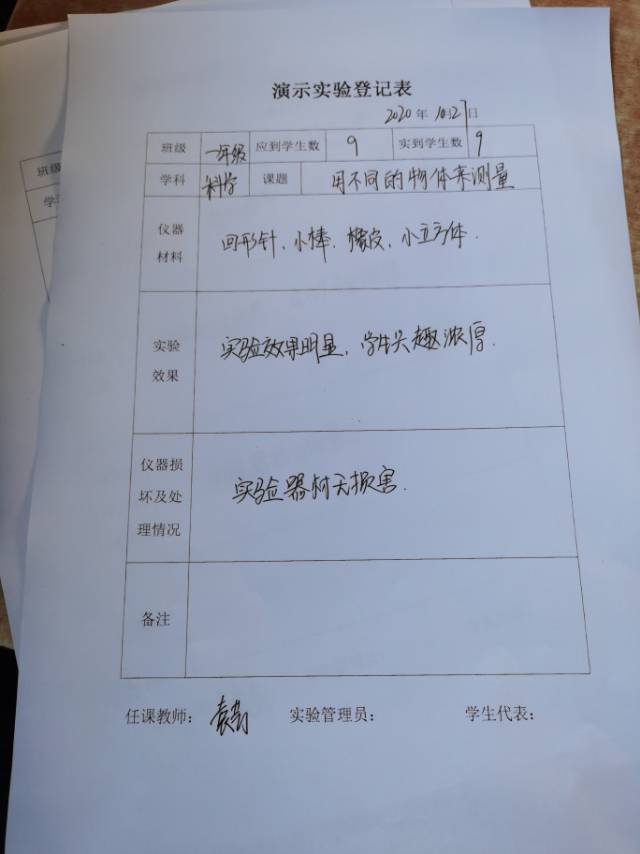 演示实验登记表
2020年10月27日
班级 一年级 应到学生数 9 实到学生数 9
学科 科学 课题 用不同的物体来测量
仪器
材料
回形针、小棒、橡皮、小立方体.
实验
效果
实验效果明显,学生兴趣浓厚.
仪器损
坏及处
理情况
实验器材无损害.
备注
任课教师: 实验管理员: 学生代表:
班级